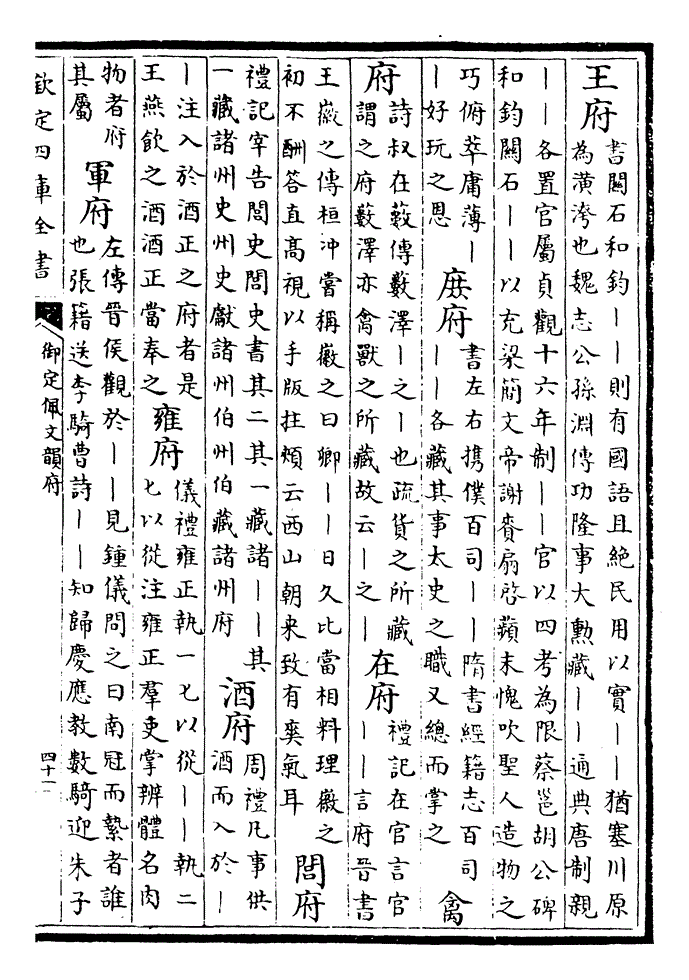 王府
書關石和鈞丨丨則有國語且絕民用以實丨丨猶塞川原
為潢洿也魏志公孫淵傳功隆事大勳藏丨丨通典唐制親
丨丨各置官屬貞觀十六年制丨丨官以四考為限蔡邕胡公碑
和鈞關石丨丨以充梁簡文帝謝賚扇啓蘋末愧吹聖人造物之
巧俯萃庸薄丨
丨好玩之恩
庶府
書左右攜僕百司丨丨隋書經籍志百司
丨丨各藏其事太史之職又總而掌之
禽
府
詩叔在藪傳藪澤丨之丨也疏貨之所藏
謂之府藪澤亦禽獸之所藏故云丨之丨
在府
禮記在官言官
丨丨言府晉書
王徽之傳桓沖嘗稱徽之曰卿丨丨日久比當相料理徽之
初不酬答直高視以手版拄頰云西山朝來致有爽氣耳
閭府
禮記宰告閭史閭史書其二其一藏諸丨丨其
一藏諸州史州史獻諸州伯州伯藏諸州府
酒府
周禮凡事供
酒而入於丨
丨注入於酒正之府者是
王燕飲之酒酒正當奉之
雍府
儀禮雍正執一匕以從丨丨執二
匕以從注雍正羣吏掌辨體名肉
物者府
其屬
軍府
左傳晉侯觀於丨丨見鍾儀問之曰南冠而縶者誰
也張籍送李騎曹詩丨丨知歸慶應教數騎迎朱子
欽定四庫全書
御定佩文韻府
四十一